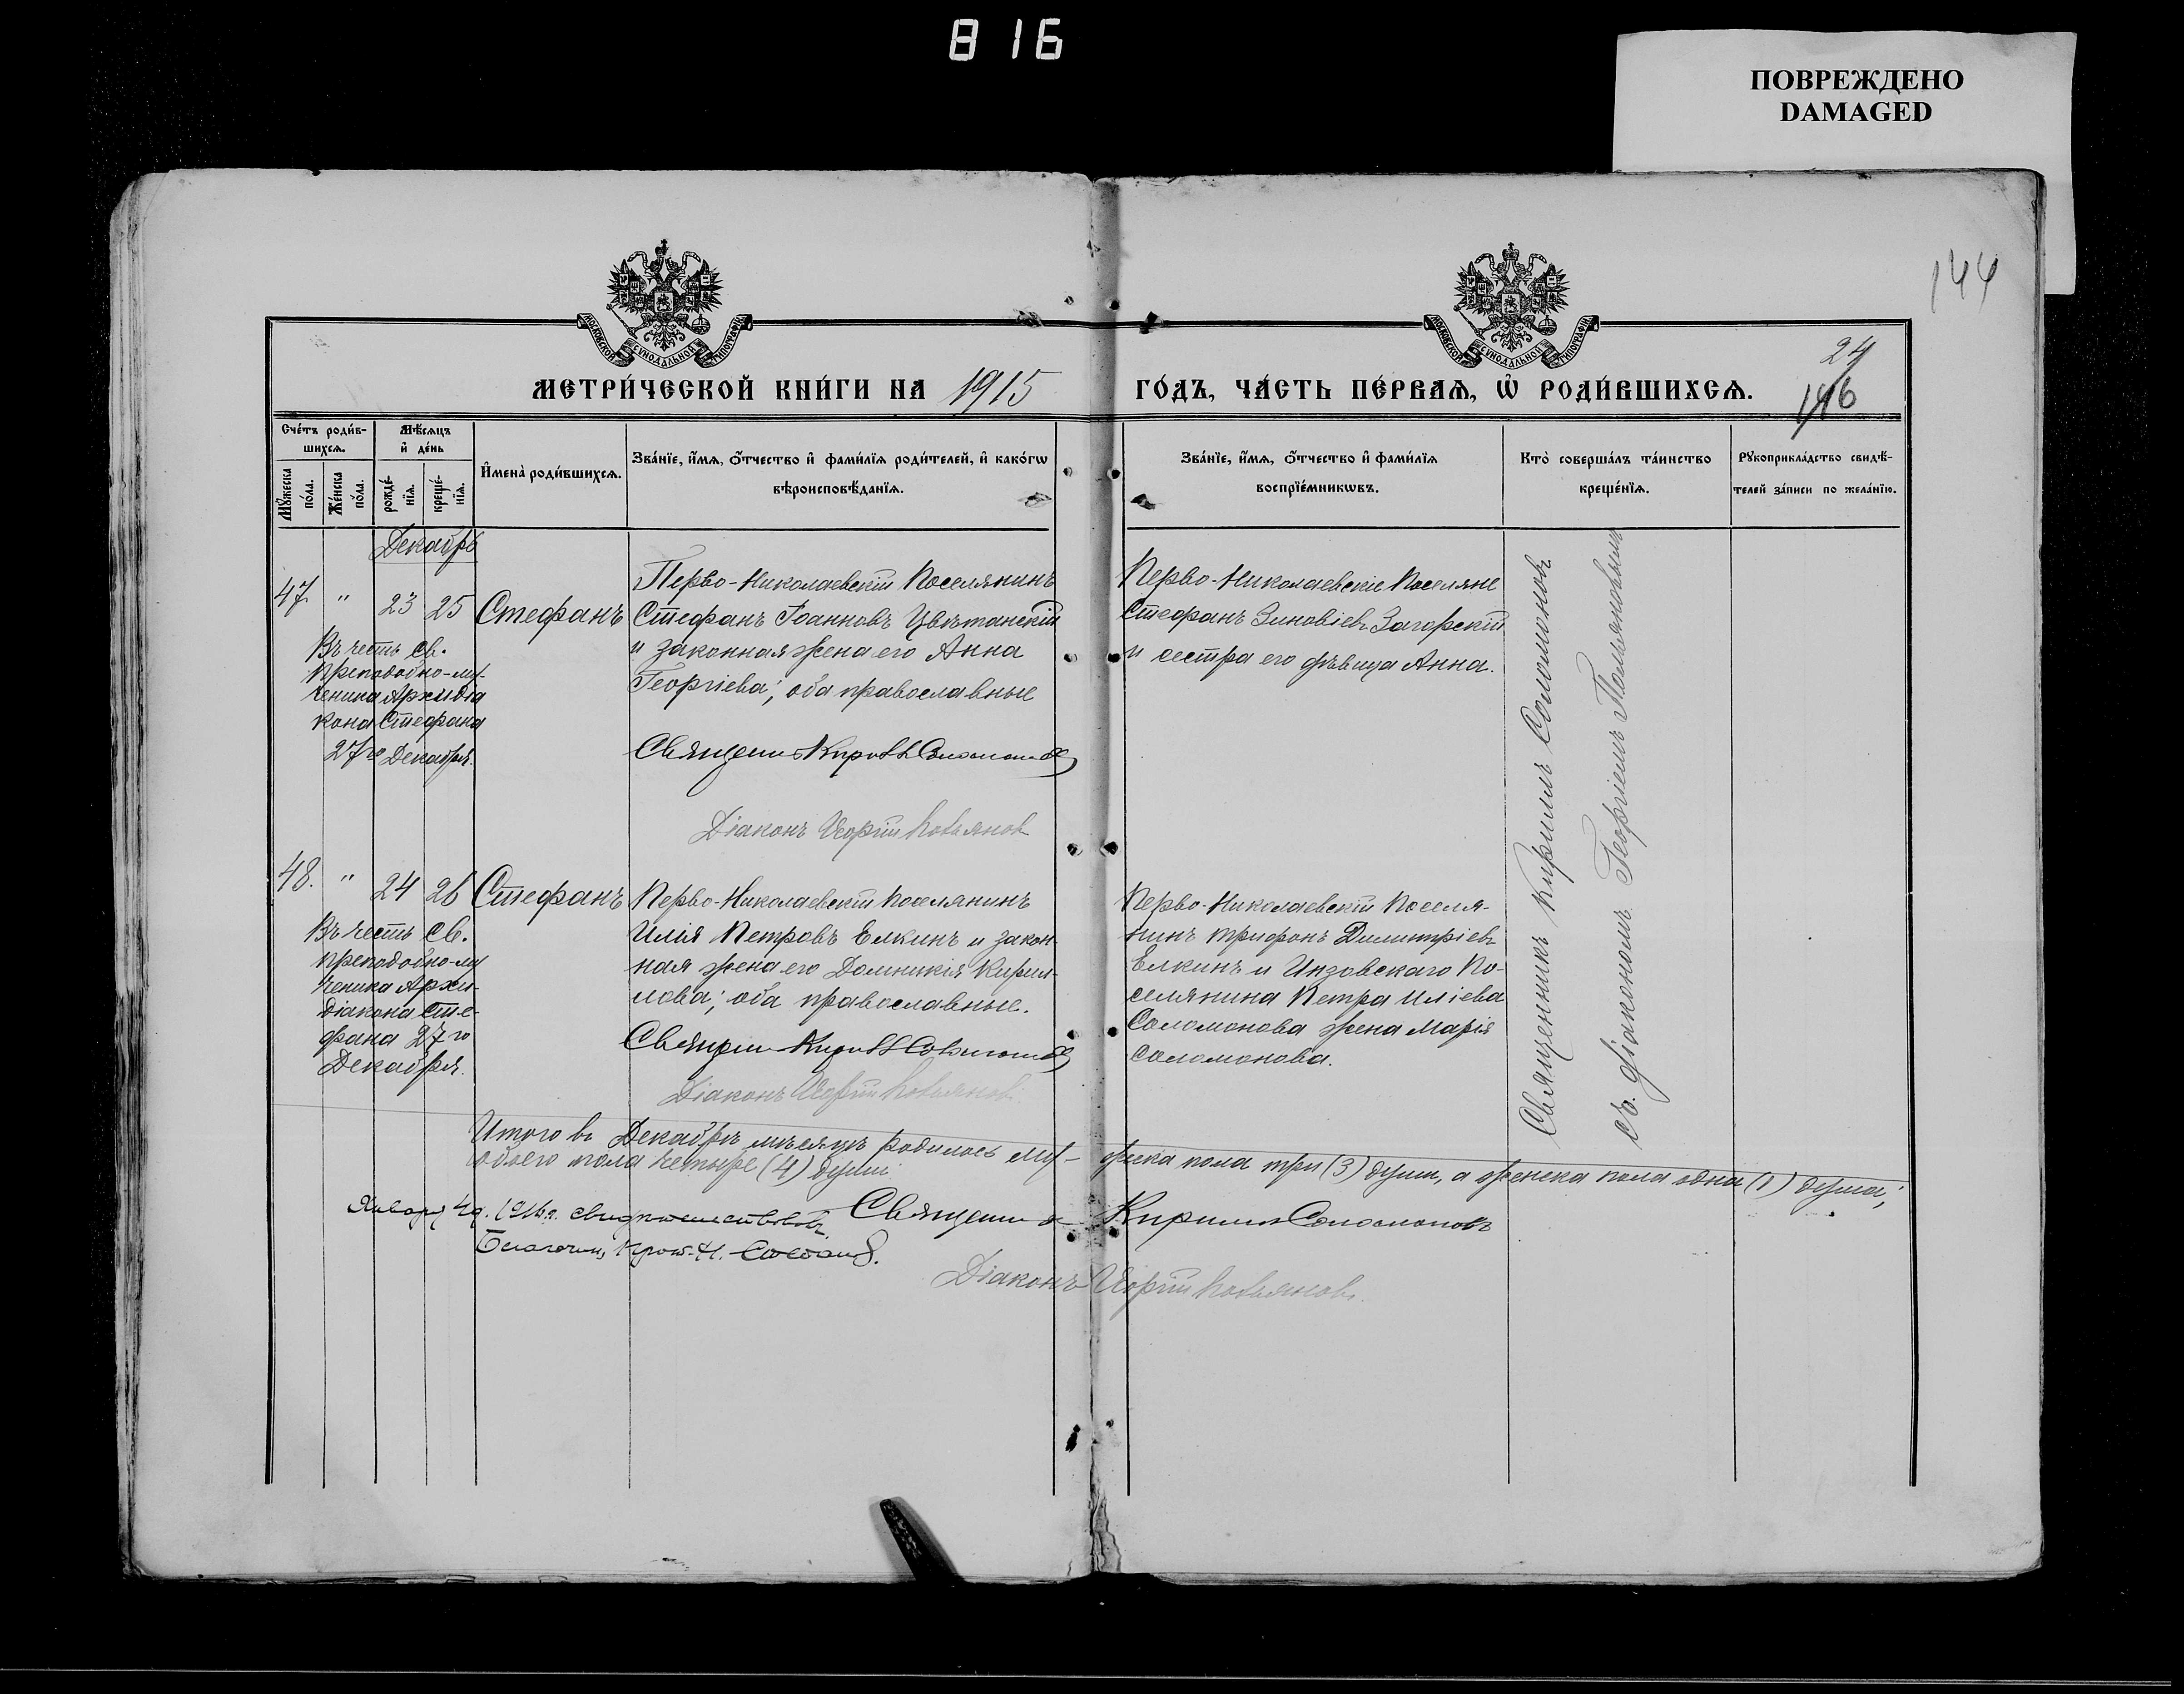 816
ПОВРЕЖДЕНО
DAMAGED
144
МОСКОВСКОЙ СѴНОДАЛЬНОЙ ТИПОГРАФІИ
МОСКОВСКОЙ СѴНОДАЛЬНОЙ ТИПОГРАФІИ
24
146
МЕТРИ́ЧЕСКОЙ КНИ́ГИ НА 1915 ГО́ДЪ, ЧА́СТЬ ПЕ́РВАѦ, Ѡ҆ РОДИ́ВШИХСѦ.
Сче́тъ роди́в-
шихсѧ.
Мѣ́сѧцъ
и҆ де́нь
Мꙋ́жеска
по́ла.
Же́нска
по́ла.
рожде́-
нїѧ.
креще́-
нїѧ.
И҆мена̀ роди́вшихсѧ.
Зва́нїе, и҆́мѧ, ѻ҆́тчество и҆ фами́лїѧ роди́телей, и҆ како́гѡ
вѣроисповѣ́данїѧ.
Зва́нїе, и҆́мѧ, ѻ҆́тчество и҆ фами́лїѧ
воспрїе́мникѡвъ.
Кто̀ соверша́лъ та́инство
креще́нїѧ.
Рꙋкоприкла́дство свидѣ́-
телей за́писи по жела́нїю.
Декабрь
47. " 23 25 Стефанъ
Въ честь Св.
преподобно-му-
ченика Архидіа
кона Стефана
27го Декабря.
Перво-Николаевскій Поселянинъ
Стефанъ Іоанновъ Цвѣтанскій
и законная жена его Анна
Георгіева; оба православные
Священник Кирилл Соломонов
Діаконъ Георгій
Перво-Николаевскіе Поселяне
Стефанъ Зиновіевъ Загорскій
и сестра его дѣвица Анна.
Священникъ Кириллъ Соломоновъ
съ діакономъ Георгіемъ
48. " 24 26 Стефанъ
Въ честь Св.
преподобно-му
ченика Архи-
діакона Сте-
фана 27го
Декабря.
Перво-Николаевскій поселянинъ
Илія Петровъ Елкинъ и закон-
ная жена его Домникія Кирил-
лова; оба православные.
Священник Кирилл Соломонов
Діаконъ Георгій
Перво-Николаевскій Поселя-
нинъ Трифонъ Димитріевъ
Елкинъ и Инзовскаго По-
селянина Петра Иліева
Соломонова жена Марія
Соломонова.
Итого въ Декабрѣ мѣсяцѣ родилось му-жеска пола три (3) души, а женска пола одна (1) душа;
обоего пола четыре (4) души
Января 4 д. 1916 г. свидѣтельствовалъ
Священник Кирилл Соломоновъ
Благочин. Прот. Н.
Діаконъ Георгій